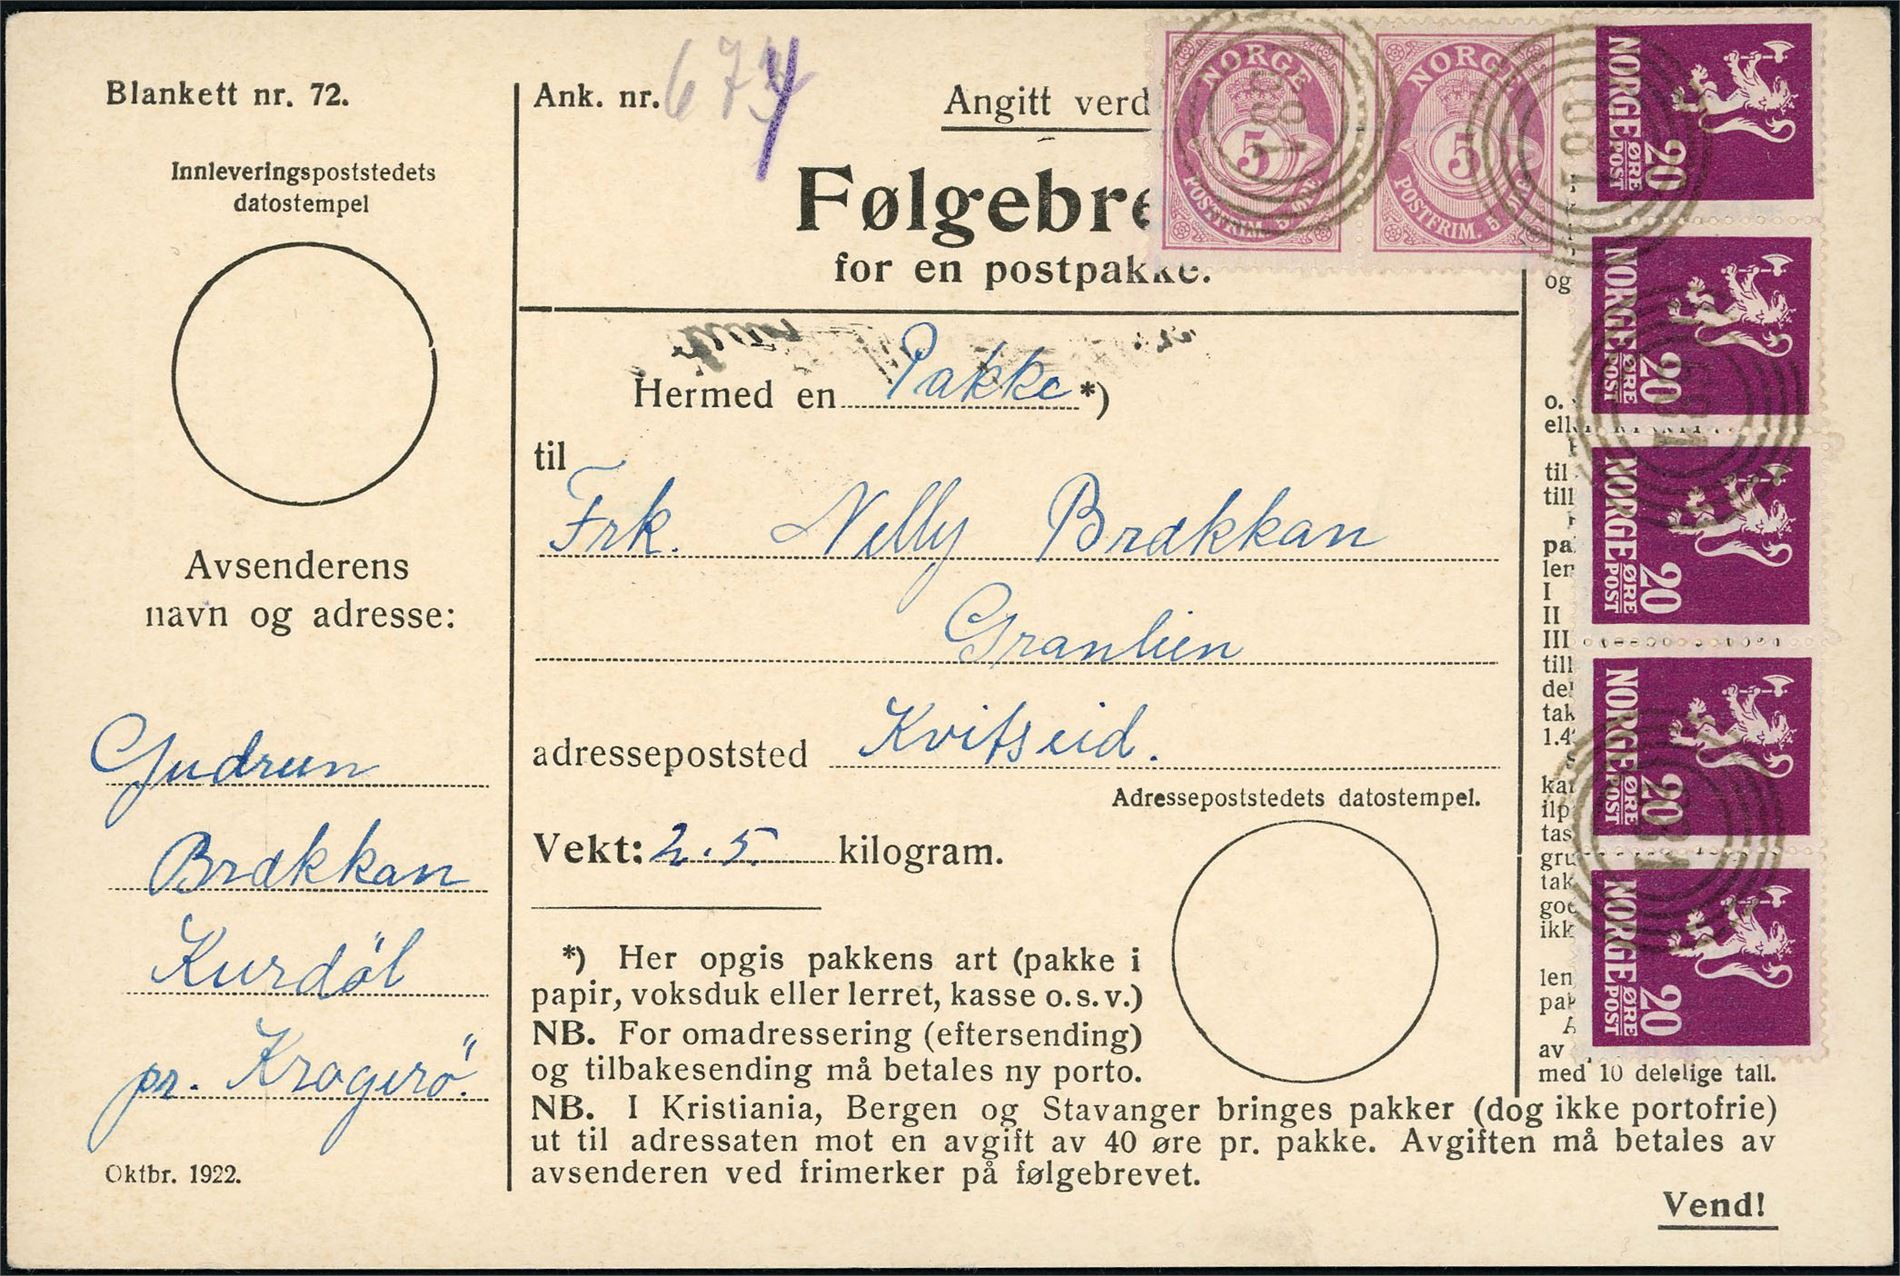 Blankett nr. 72.
Innleveringspoststedets
datostempel
Avsenderens
navn og adresse:
Gudrun
Brækkan
Kurdøl
pr. Kragerö.
Oktbr. 1922.
Ank. nr. 673
Angitt verd
Følgebre
for en postpakke.
Hermed en Pakke *)
til
Frk. Nelly Brækkan
Granlien
adressepoststed Kvitseid.
Adressepoststedets datostempel.
Vekt: 2.5. kilogram.
*) Her opgis pakkens art (pakke i
papir, voksduk eller lerret, kasse o.s.v.)
NB. For omadressering (eftersending)
og tilbakesending må betales ny porto.
NB. I Kristiania, Bergen og Stavanger bringes pakker (dog ikke portofrie)
ut til adressaten mot en avgift av 40 øre pr. pakke. Avgiften må betales av
avsenderen ved frimerker på følgebrevet.
Vend!
NORGE
5
POSTFRIM. 5 ØRE
NORGE
5
POSTFRIM. 5 ØRE
1891
1891
NORGE 20 ØRE POST
NORGE 20 ØRE POST
NORGE 20 ØRE POST
NORGE 20 ØRE POST
NORGE 20 ØRE POST
og
o.
til
till
I
II
III
till
tak
ilp
tas
tak
ikk
len
av
med 10 delelige tall.